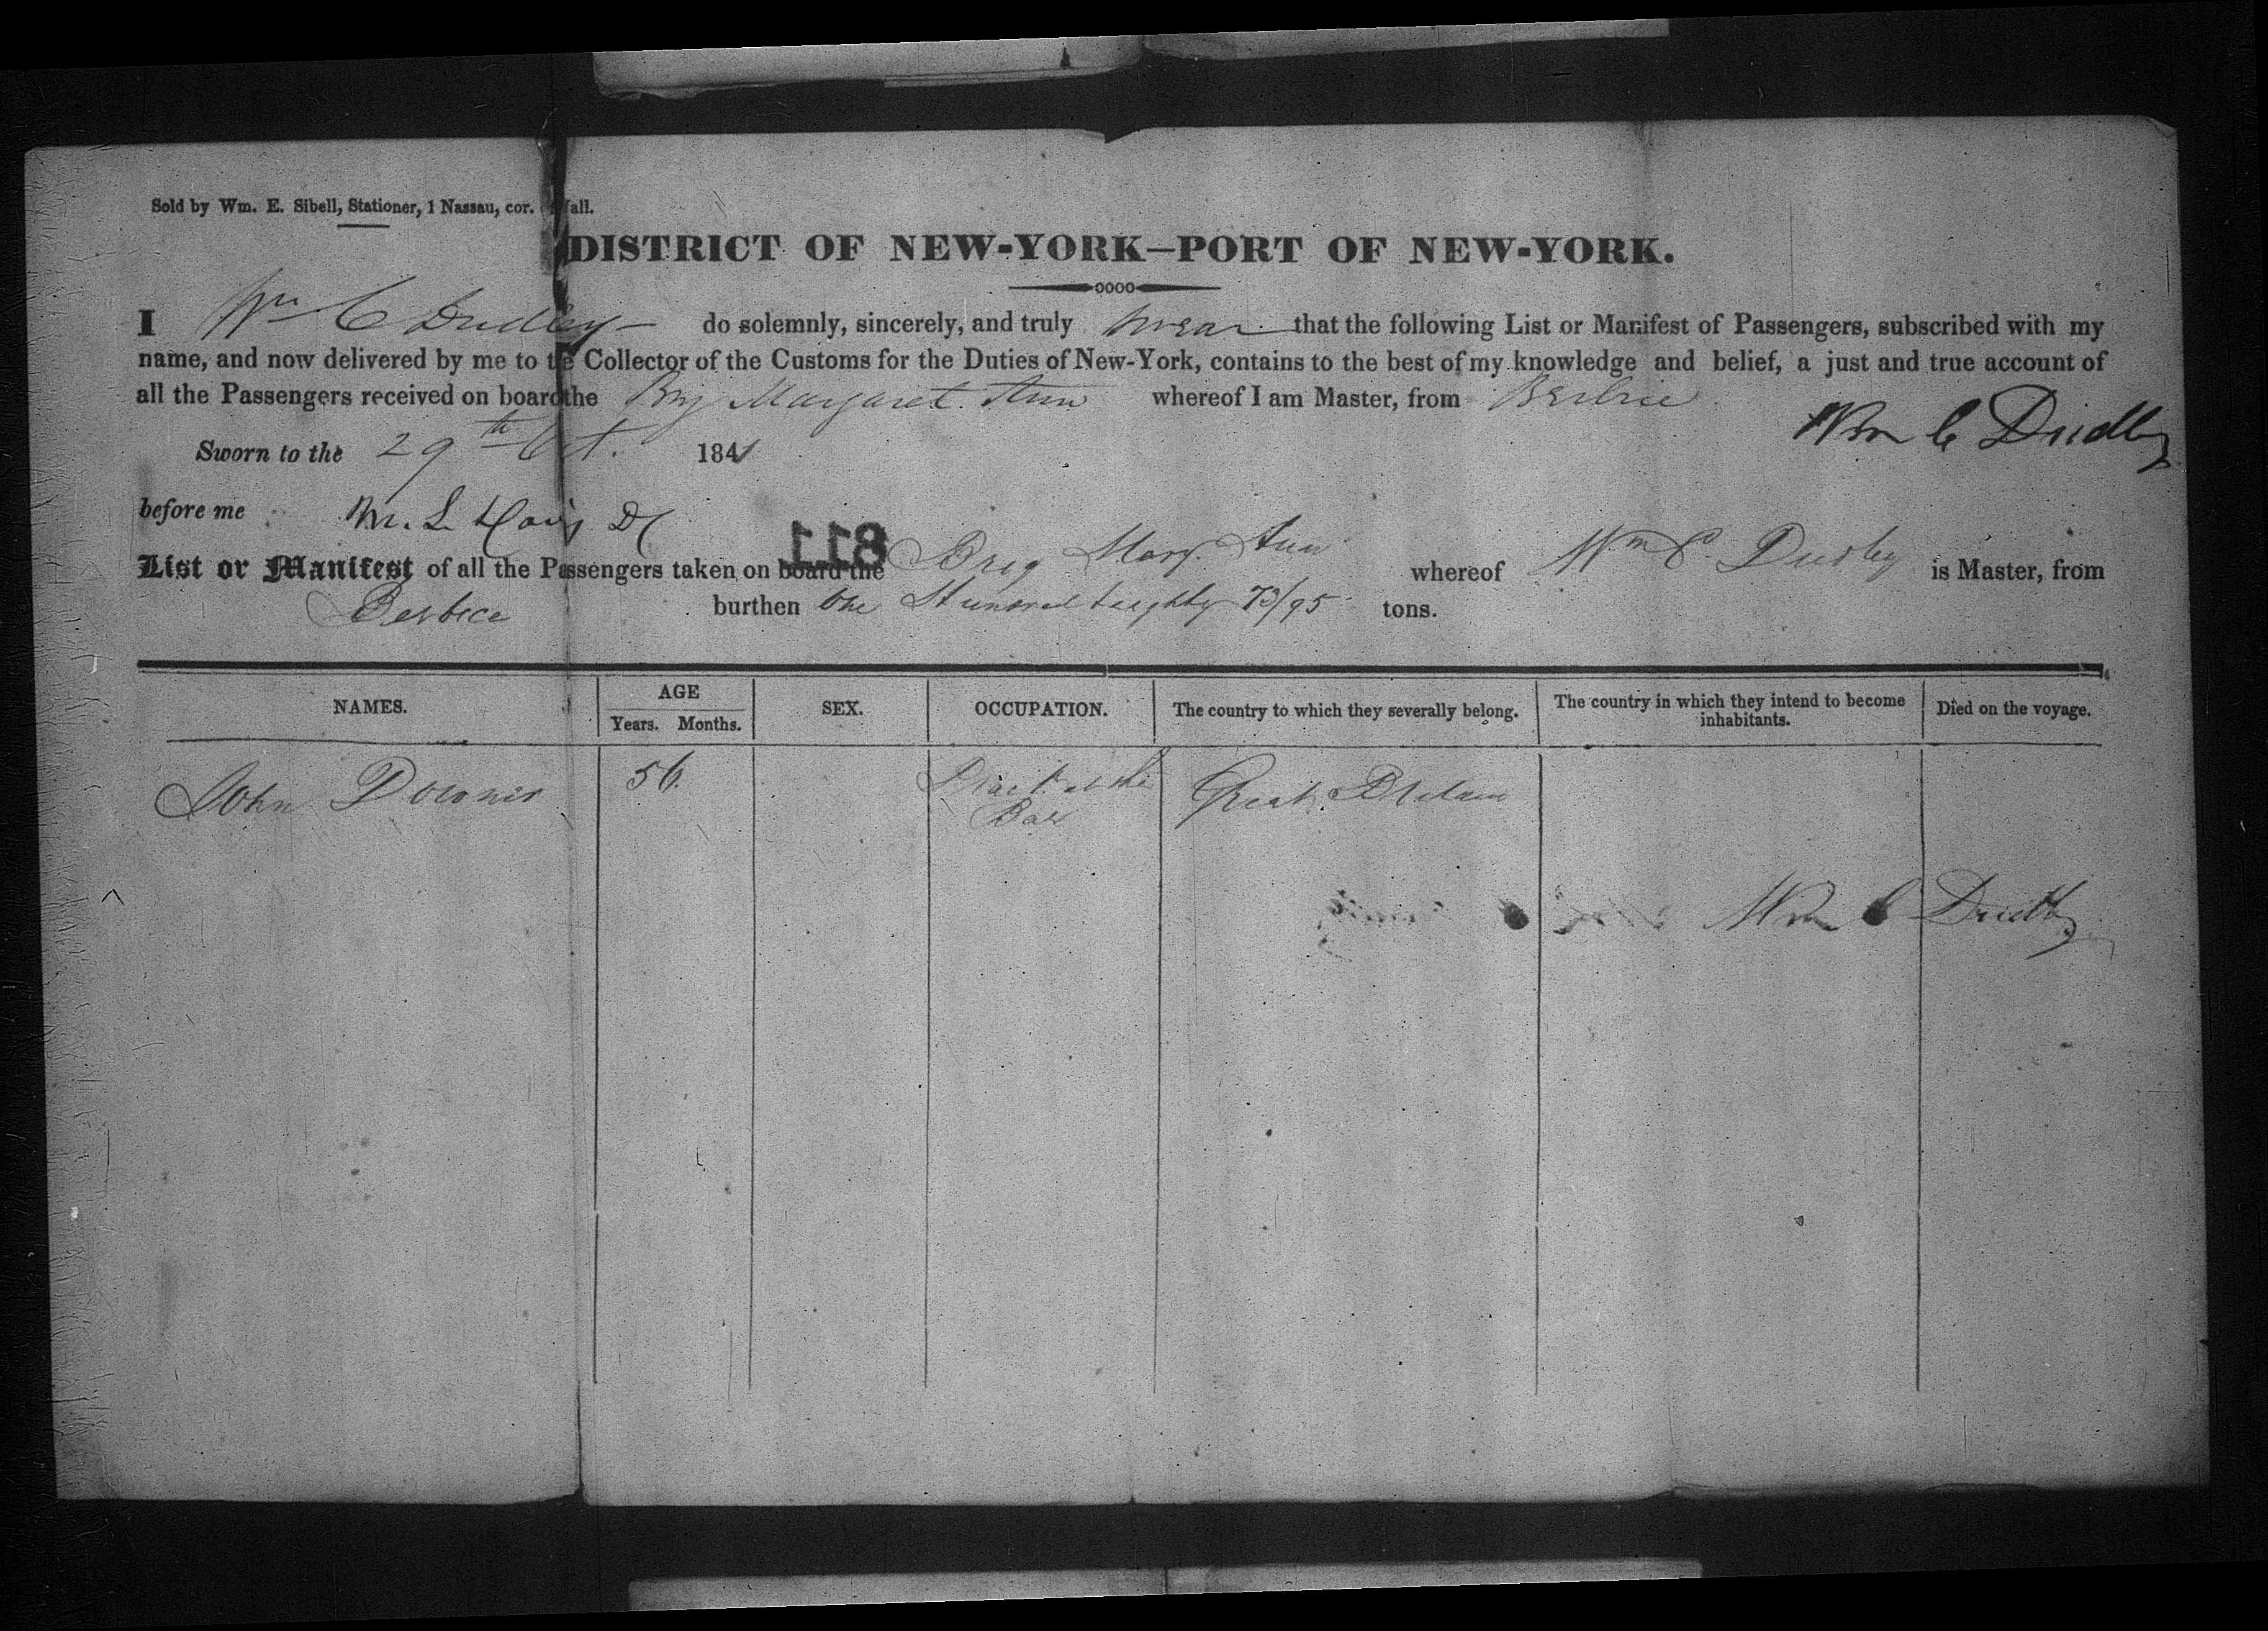 Sold by Wm. E. Sibell, Stationer, 1 Nassau, cor. Wall.
DISTRICT OF NEW-YORK—PORT OF NEW-YORK.
I Wm C Dudley do solemnly, sincerely, and truly swear that the following List or Manifest of Passengers, subscribed with my
name, and now delivered by me to the Collector of the Customs for the Duties of New-York, contains to the best of my knowledge and belief, a just and true account of
all the Passengers received on board the Brig Margaret Ann whereof I am Master, from Berbice
Wm C Dudley
Sworn to the 29th Oct. 1841
before me M. L. Davis DC
811
List or Manifest of all the Passengers taken on board the Brig Marg. Ann whereof Wm C Dudley is Master, from
Berbice burthen One Hundred & eighty 73/95 tons.
NAMES. AGE Years. Months. SEX. OCCUPATION. The country to which they severally belong. The country in which they intend to become inhabitants. Died on the voyage.
John Downer 56 at the Great Britain
Bar
Wm C Dudley